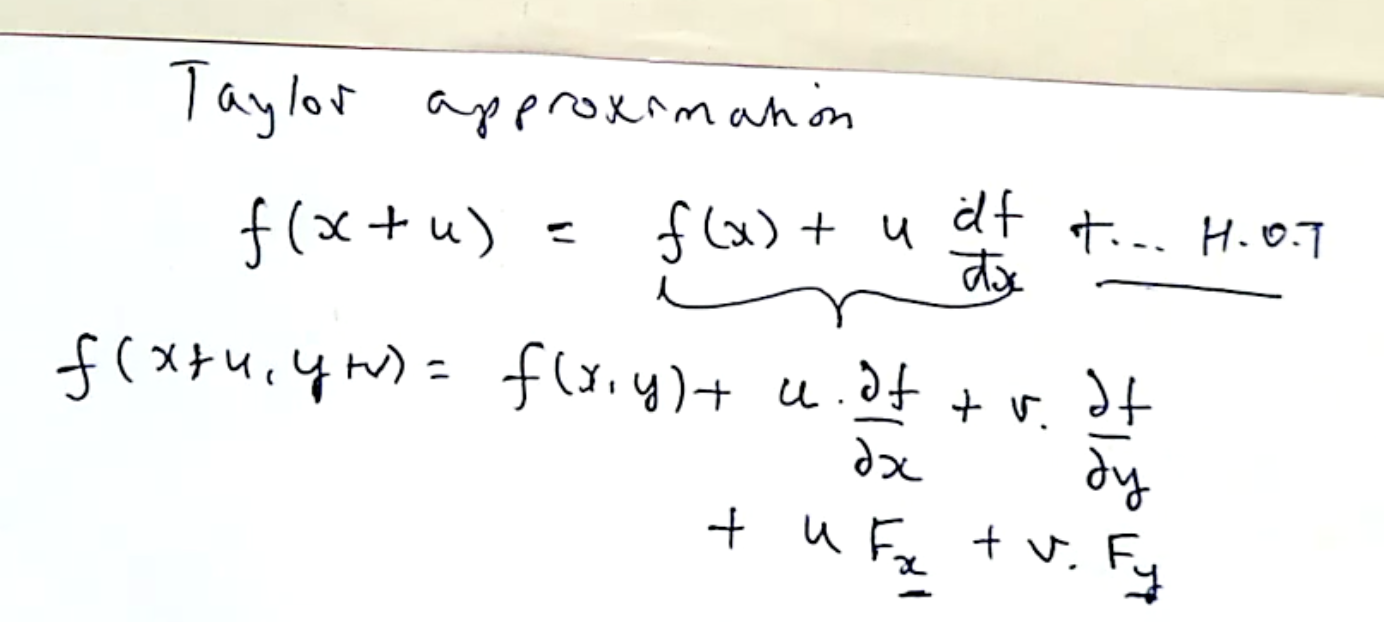 Taylor approximation
f(x+u) = f(x) + u df/dx +... H.O.T
f(x+u, y+v) = f(x,y) + u. ∂f/∂x + v. ∂f/∂y
+ u Fx + v. Fy